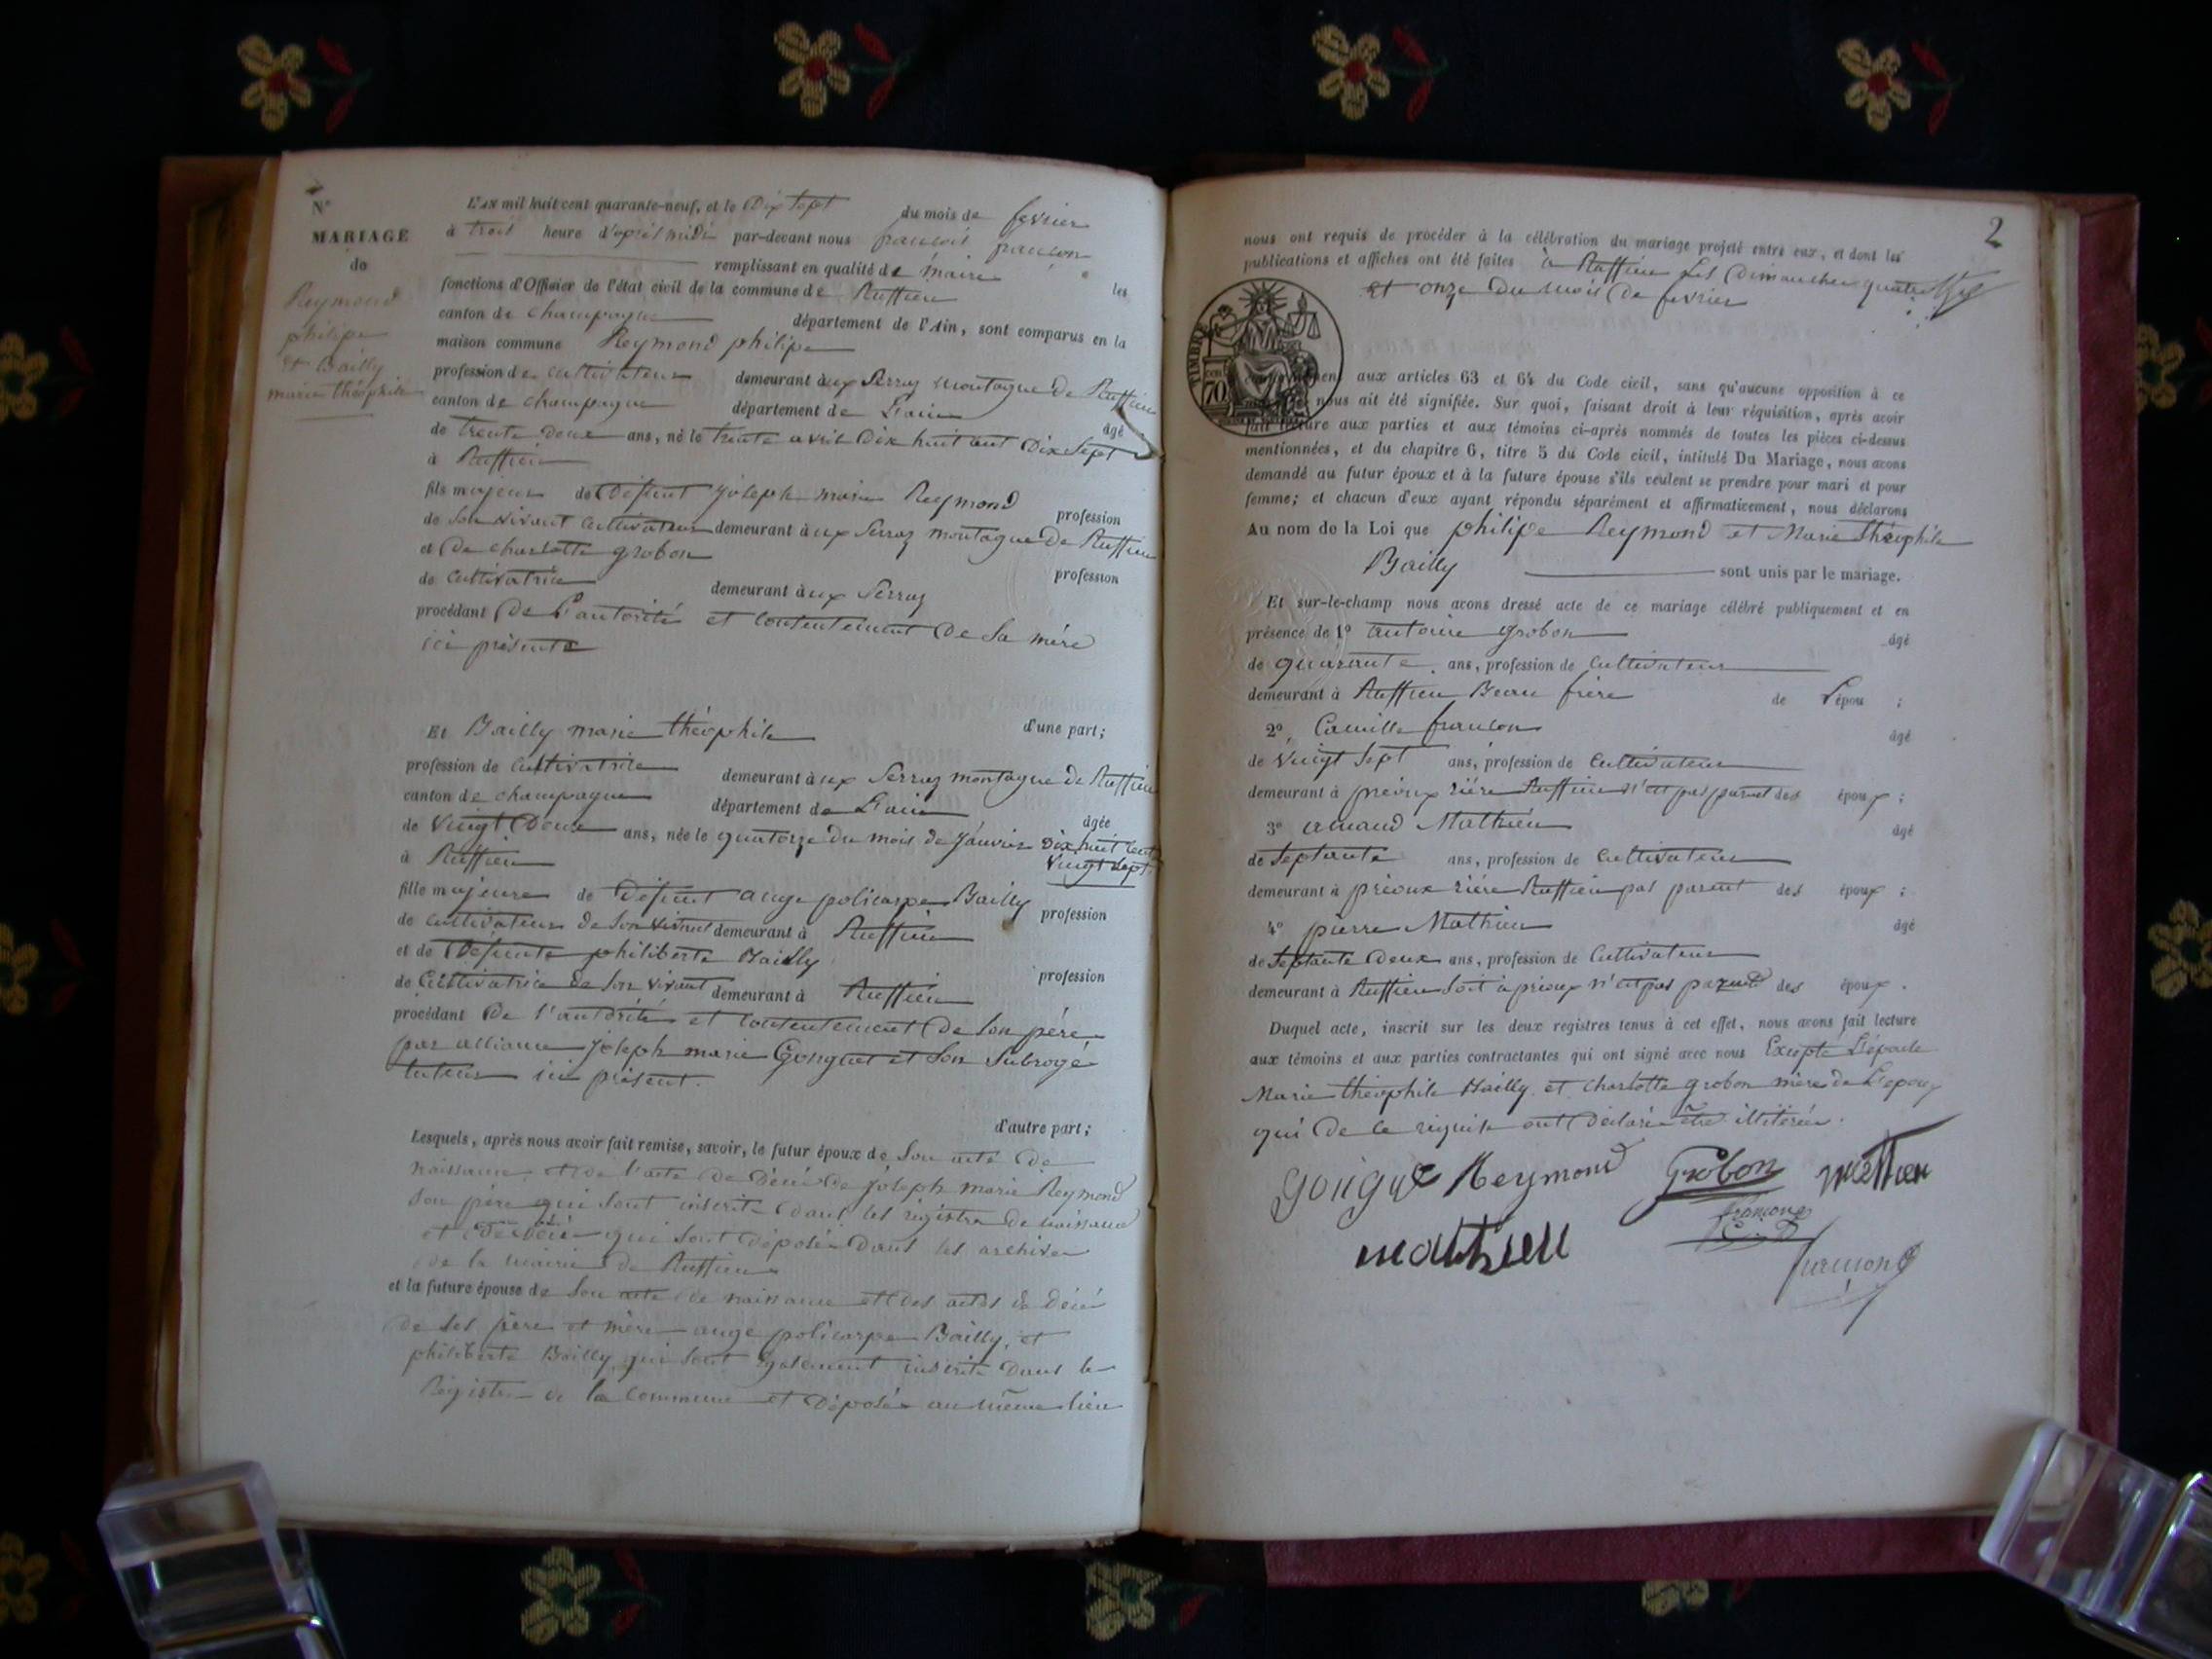 N°
MARIAGE
de
Reymond
philipe
et Bailly
marie théophile
L'AN mil huit cent quarante-neuf, et le Dix sept du mois de fevrier
à trois heure d'après midi par-devant nous francois francon
remplissant en qualité de maire les
fonctions d'Officier de l'état civil de la commune de Ruffieu
canton de champagne département de l'Ain, sont comparus en la
maison commune Reymond philipe
profession de cultivateur demeurant aux Serraz montagne de Ruffieu
canton de champagne département de L'ain âgé
de trente deux ans, né le trente avril Dix huit cent Dix sept
à Ruffieu
fils majeur de Défunt joseph marie Reymond profession
de son vivant cultivateur demeurant aux Serraz montagne de Ruffieu
et de charlotte grobon profession
de cultivatrice demeurant aux Serraz
procédant de L'autorité et consentement de sa mère
ici présente
d'une part;
Et Bailly marie théophile
profession de cultivatrice demeurant aux Serraz montagne de Ruffieu
canton de champagne département de L'ain âgée
de Vingt Deux ans, née le quatorze du mois de janvier Dix huit cent
Vingt sept
à Ruffieu
fille majeure de Défunt ange policarpe Bailly profession
de cultivateur de son vivant demeurant à Ruffieu
et de Défunte philiberte Bailly profession
de Cultivatrice de son vivant demeurant à Ruffieu
procédant De l'autorité et consentement de son père
par alliance joseph marie Gonguet et son Subrogé
tuteur ici présent.
d'autre part;
Lesquels, après nous avoir fait remise, savoir, le futur époux de son acte de
naissance et de l'acte de Décé de joseph marie Reymond
son père qui sont inscrit dans les régistre de naissance
et Décé qui sont déposé dans les archives
de la mairie de Ruffieu
et la future épouse de son acte de naissance et des actes de décé
de ses père et mère ange policarpe Bailly, et
philiberte Bailly, qui sont également inscrit dans le
Régistre de la commune et Déposé au même lieu
2
nous ont requis de procéder à la célébration du mariage projeté entre eux, et dont les
publications et affiches ont été faites à Ruffieu les Dimanches quatre
et onze du mois de fevrier
TIMBRE
70
aux articles 63 et 64 du Code civil, sans qu'aucune opposition à ce
nous ait été signifiée. Sur quoi, faisant droit à leur réquisition, après avoir
fait lecture aux parties et aux témoins ci-après nommés de toutes les pièces ci-dessus
mentionnées, et du chapitre 6, titre 5 du Code civil, intitulé Du Mariage, nous avons
demandé au futur époux et à la future épouse s'ils veulent se prendre pour mari et pour
femme; et chacun d'eux ayant répondu séparément et affirmativement, nous déclarons
Au nom de la Loi que philipe Reymond et Marie théophile
Bailly sont unis par le mariage.
Et sur-le-champ nous avons dressé acte de ce mariage célébré publiquement et en
présence de 1° antoine grobon âgé
de quarante ans, profession de cultivateur
demeurant à Ruffieu Beau frère de L'épou ;
2° Camille francon âgé
de Vingt Sept ans, profession de cultivateur
demeurant à prioux rière Ruffieu n'est pas parent des époux ;
3° arnaud Mathieu âgé
de Septante ans, profession de cultivateur
demeurant à prioux rière Ruffieu pas parent des époux ;
4° pierre Mathieu âgé
de Septante Deux ans, profession de cultivateur
demeurant à Ruffieu soit à prioux n'est pas parent des époux .
Duquel acte, inscrit sur les deux registres tenus à cet effet, nous avons fait lecture
aux témoins et aux parties contractantes qui ont signé avec nous Excepté L'épouse
Marie théophile Bailly et charlotte grobon mère de L'epoux
qui de ce requise ont déclaré être illitérée.
Gonguet Reymond Grobon Mathieu
francon
mathieu
francon